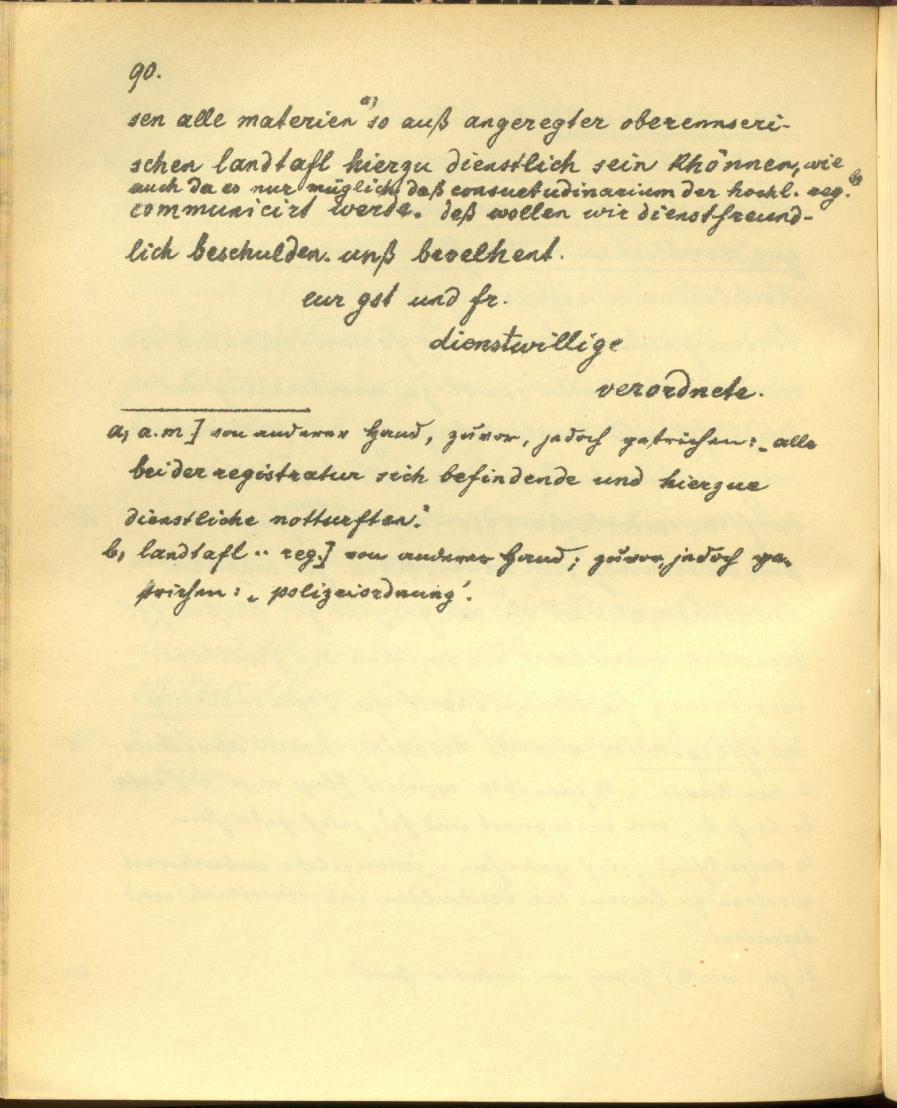 90.
sen alle materien a) so auß angeregter oberennseri-
schen landtafl hierzu dienstlich sein khönnen, wie
auch da es nur müglich daß consuetudinarium der hochl. reg. b)
communicirt werde. deß wollen wir dienstfreund-
lich beschulden. unß bevelhent.
eur gst und fr.
dienstwillige
verordnete.
a) a.m.] von anderer Hand, zuvor, jedoch gestrichen: „alle
bei der registratur sich befindende und hierzue
dienstliche notturften."
b) landtafl .. reg.] von anderer Hand; zuvor, jedoch ge-
strichen: „polizeiordnung".